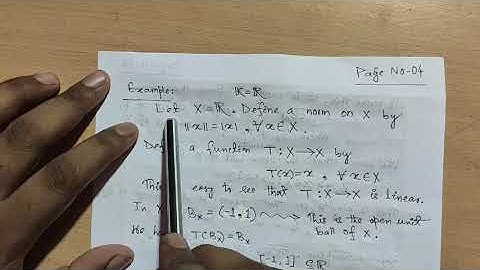 Page No-04
Example: 𝕂=ℝ
Let X=ℝ. Define a norm on X by
||x||=|x|, ∀ x∈X.
a function T:X→X by
T(x)=x, ∀ x∈X.
easy to see that T:X→X is linear.
In X B_X = (-1,1) This is the open unit
ball of X.
T(B_X)=B_X
[-1,1] ⊂ℝ